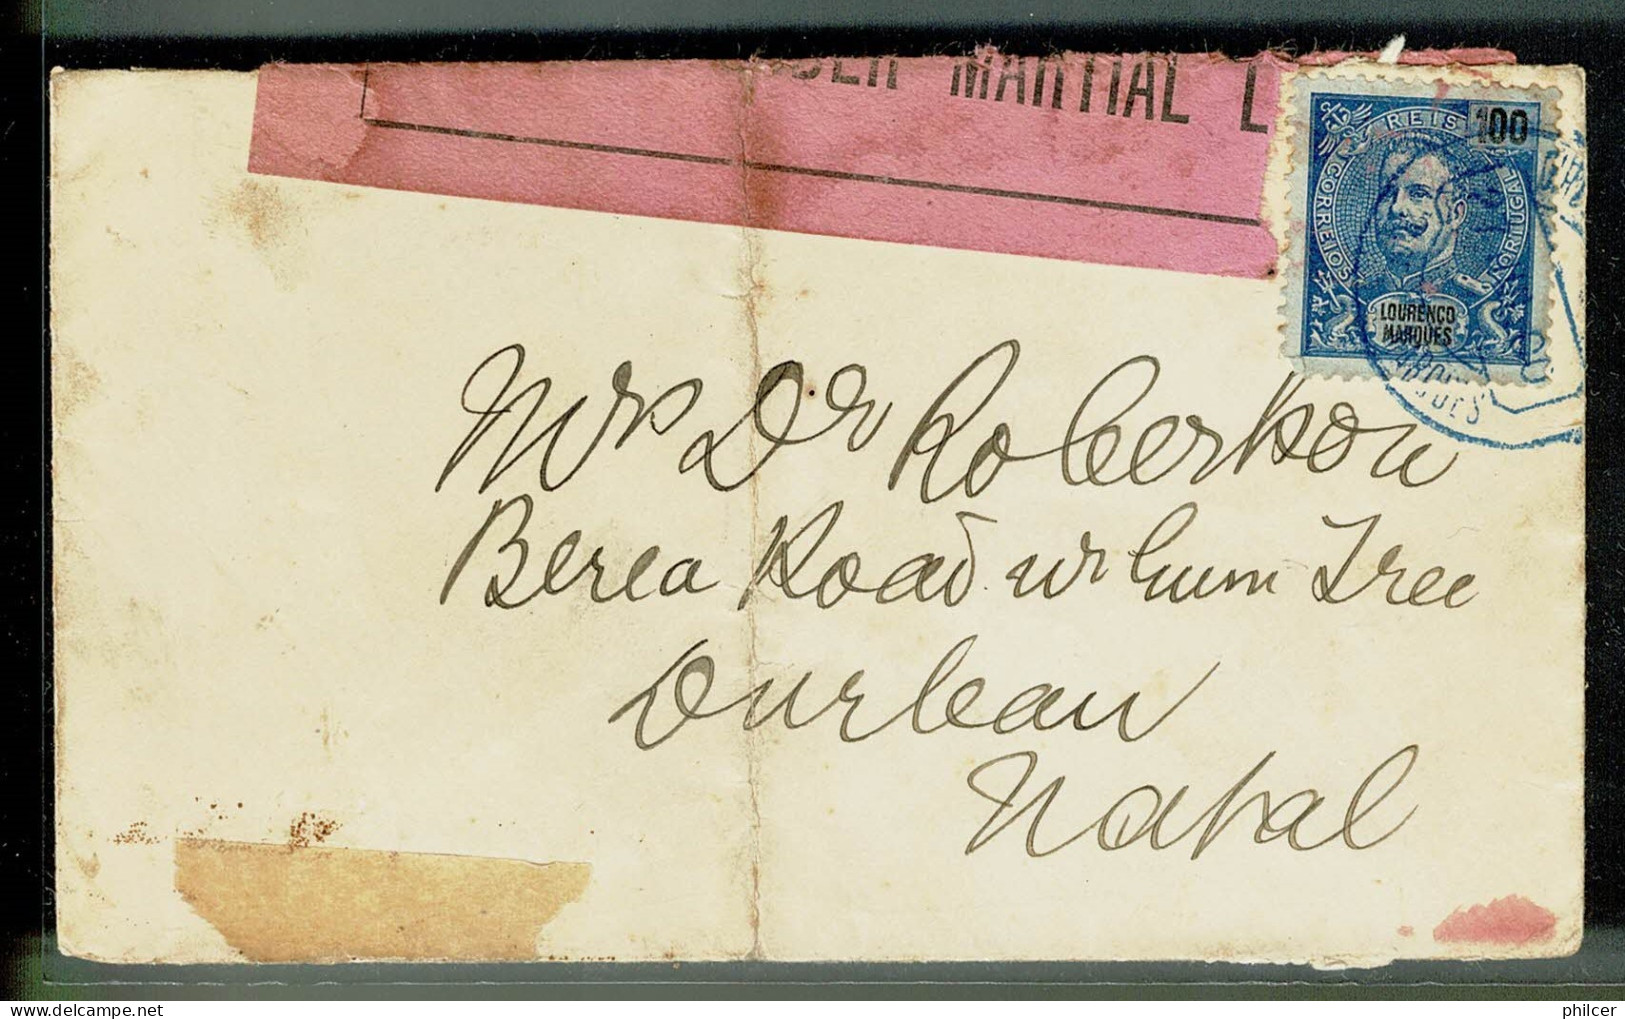 DER MARTIAL L
REIS 100
CORREIOS
PORTUGAL
LOURENCO
MARQUES
Mrs Dr Roberson
Berea Road
Tree
Durban
Natal
philcer